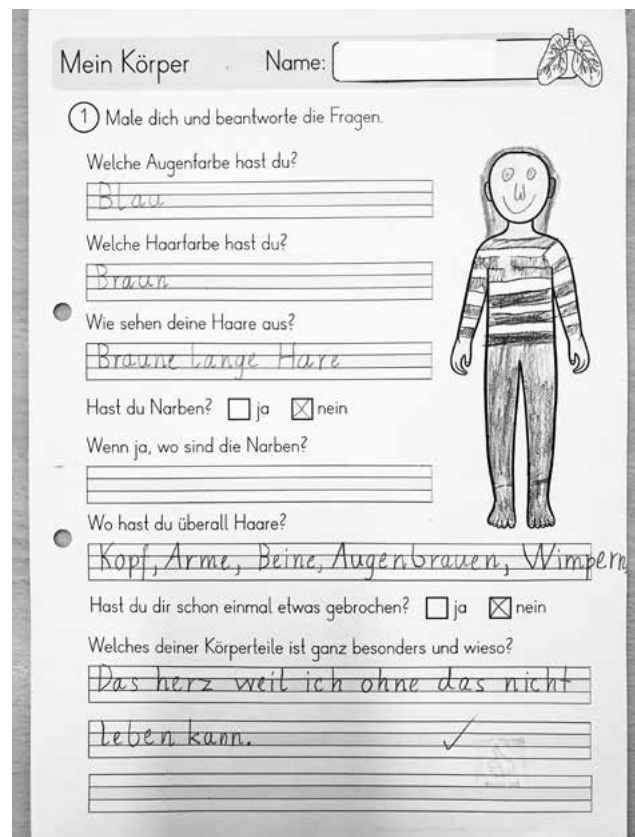 Mein Körper Name:
1 Male dich und beantworte die Fragen.
Welche Augenfarbe hast du?
Blau
Welche Haarfarbe hast du?
Braun
Wie sehen deine Haare aus?
Braune lange Hare
Hast du Narben? ja nein
Wenn ja, wo sind die Narben?
Wo hast du überall Haare?
Kopf, Arme, Beine, Augenbrauen, Wimpern,
Hast du dir schon einmal etwas gebrochen? ja nein
Welches deiner Körperteile ist ganz besonders und wieso?
Das herz weil ich ohne das nicht
leben kann.